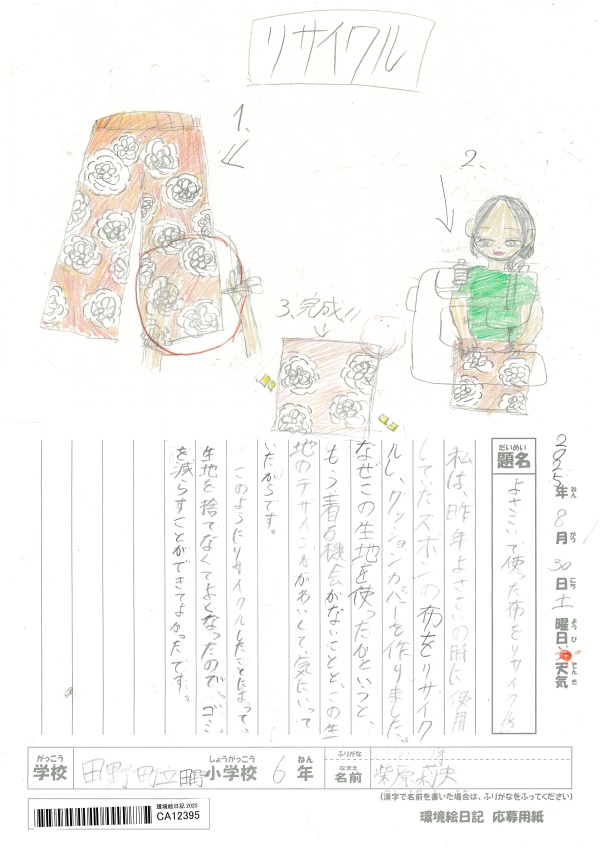 リサイクル
1、
2、
3、完成!!
2025年 8月 30日 土曜日 天気
ねん がつ にち ようび てんき
だいめい
題名
よさこいで使った布をリサイクル
私は、昨年よさこいの時に使用
していたズボンの布をリサイク
ルし、クッションカバーを作りました。
なぜこの生地を使ったかというと、
もう着る機会がないことと、この生
地のデザインがかわいくて気にいって
いたからです。
このようにリサイクルしたことによって、
生地を捨てなくてよくなったので、ゴミ
を減らすことができてよかったです。
がっこう しょうがっこう ねん ふりがな
学校 田野町立田野小学校 6年
なまえ
名前 柴原
(漢字で名前を書いた場合は、ふりがなをふってください)
環境絵日記 2025
CA12395
環境絵日記 応募用紙